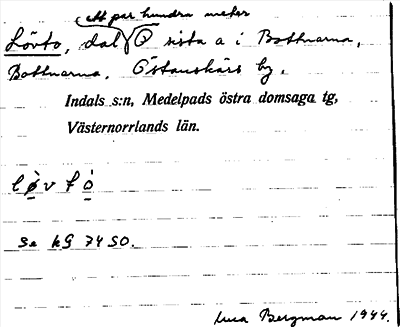 ett par hundra meter
Lövto, dal O sista a i Bottnarna,
Bottnarna, Östanskärs by,
Indals s:n, Medelpads östra domsaga tg,
Västernorrlands län.
l ø̀ v t ò
Se kG 74 SO.
Bergman 1944.